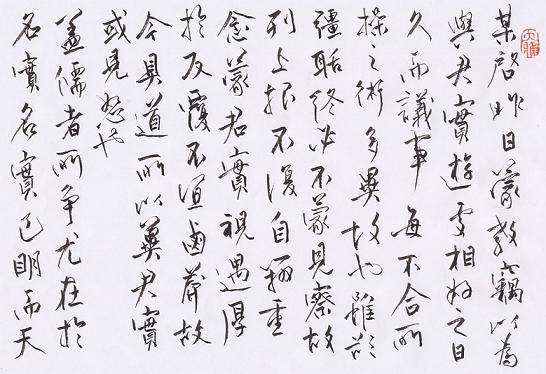 某啓昨日蒙教竊以為
與君實遊處相好之日
久而議事每不合所
操之術多異故也雖欲
彊聒終必不蒙見察故
上報不復自辨重
念蒙君實視遇厚
於反覆不宜鹵莽故
今具道所以冀君實
或見恕也
蓋儒者所爭尤在於
名實名實已明而天